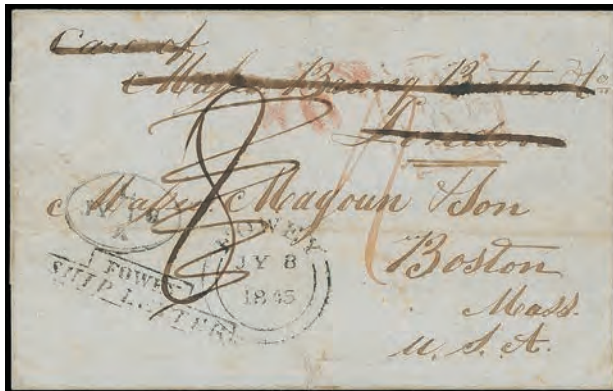 Care of
Messrs Baring Brothers & Co
London
Messrs. Magoun & Son
Boston
Mass.
U. S. A.
8
FOWEY
JY 8
1845
FOWEY
SHIP LETTER